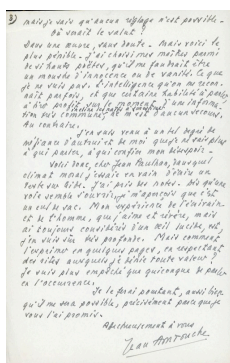 3)
mais je sais qu'aucun réglage n'est possible.
On savait le valent !
Dans une œuvre, sans doute. Mais voici le
plus pénible. J'ai choisi mes maîtres parmi
de si hauts poètes, qu'il me faudrait être
un monstre d'innocence ou de vanité. Ce que
je ne suis pas. L'intelligence qu'on me recon-
naît parfois, et une certaine habilité à parler
à bref profit, sur le moment, d'une informa-
tion peu commune, ne m'est d'aucun secours.
Au contraire.
J'en suis venu à un tel degré de
méfiance d'autrui et de moi que je ne sais plus
à qui parler, à qui confier mon désespoir.
Voilà donc, cher Jean Paulhan, dans quel
climat moral j'essaie en vain d'écrire un
texte sur Gide. J'ai pris des notes. Dès qu'une
voie semble s'ouvrir, je m'aperçois que c'est
un cul de sac. Mon expérience de l'écrivain
et de l'homme, que j'aime et révère, mais
ai toujours considérés d'un œil lucide, est,
j'en suis sûr très profonde. Mais comment
l'exprimer en quelques pages, en respectant
des rites auxquels je dénie toute valeur ?
Je suis plus empêché que quiconque de parler
en l'occurrence.
Je le ferai pourtant, aussi bien
qu'il me sera possible, précisément parce que je
vous l'ai promis.
Affectueusement à vous
Jean Amrouche